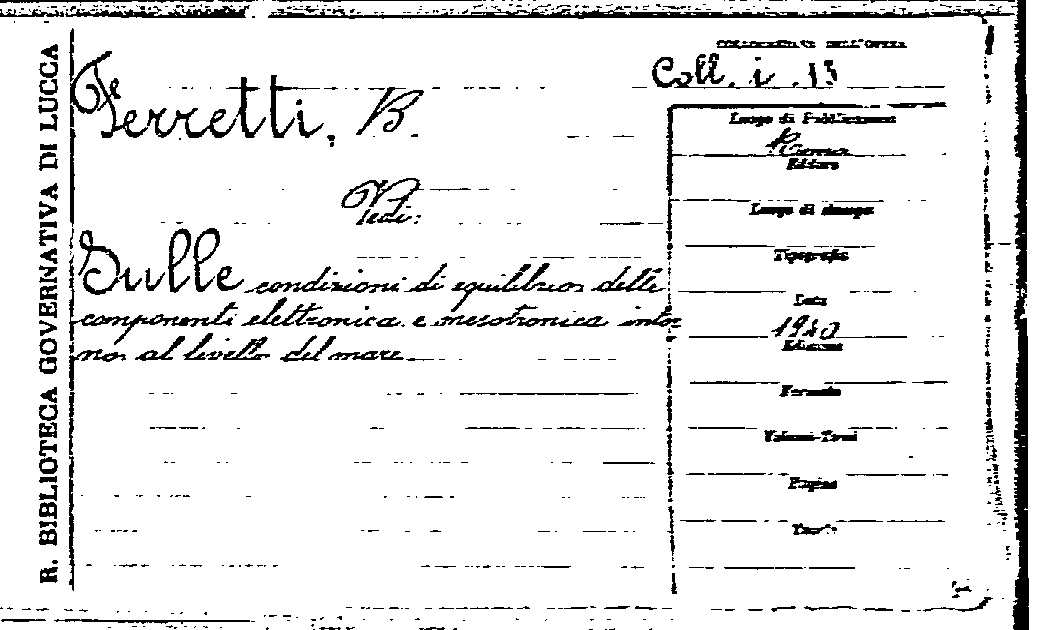 R. BIBLIOTECA GOVERNATIVA DI LUCCA
COLLOCAZIONE DELL'OPERA
Coll. i. 13
Ferretti, B.
Vedi:
Sulle condizioni di equilibrio delle
componenti elettronica e mesotronica intor
no al livello del mare
Luogo di Pubblicazione
Roma
Editore
Luogo di stampa
Tipografia
Data
1940
Edizione
Formato
Volumi-Tomi
Pagine
Tavole